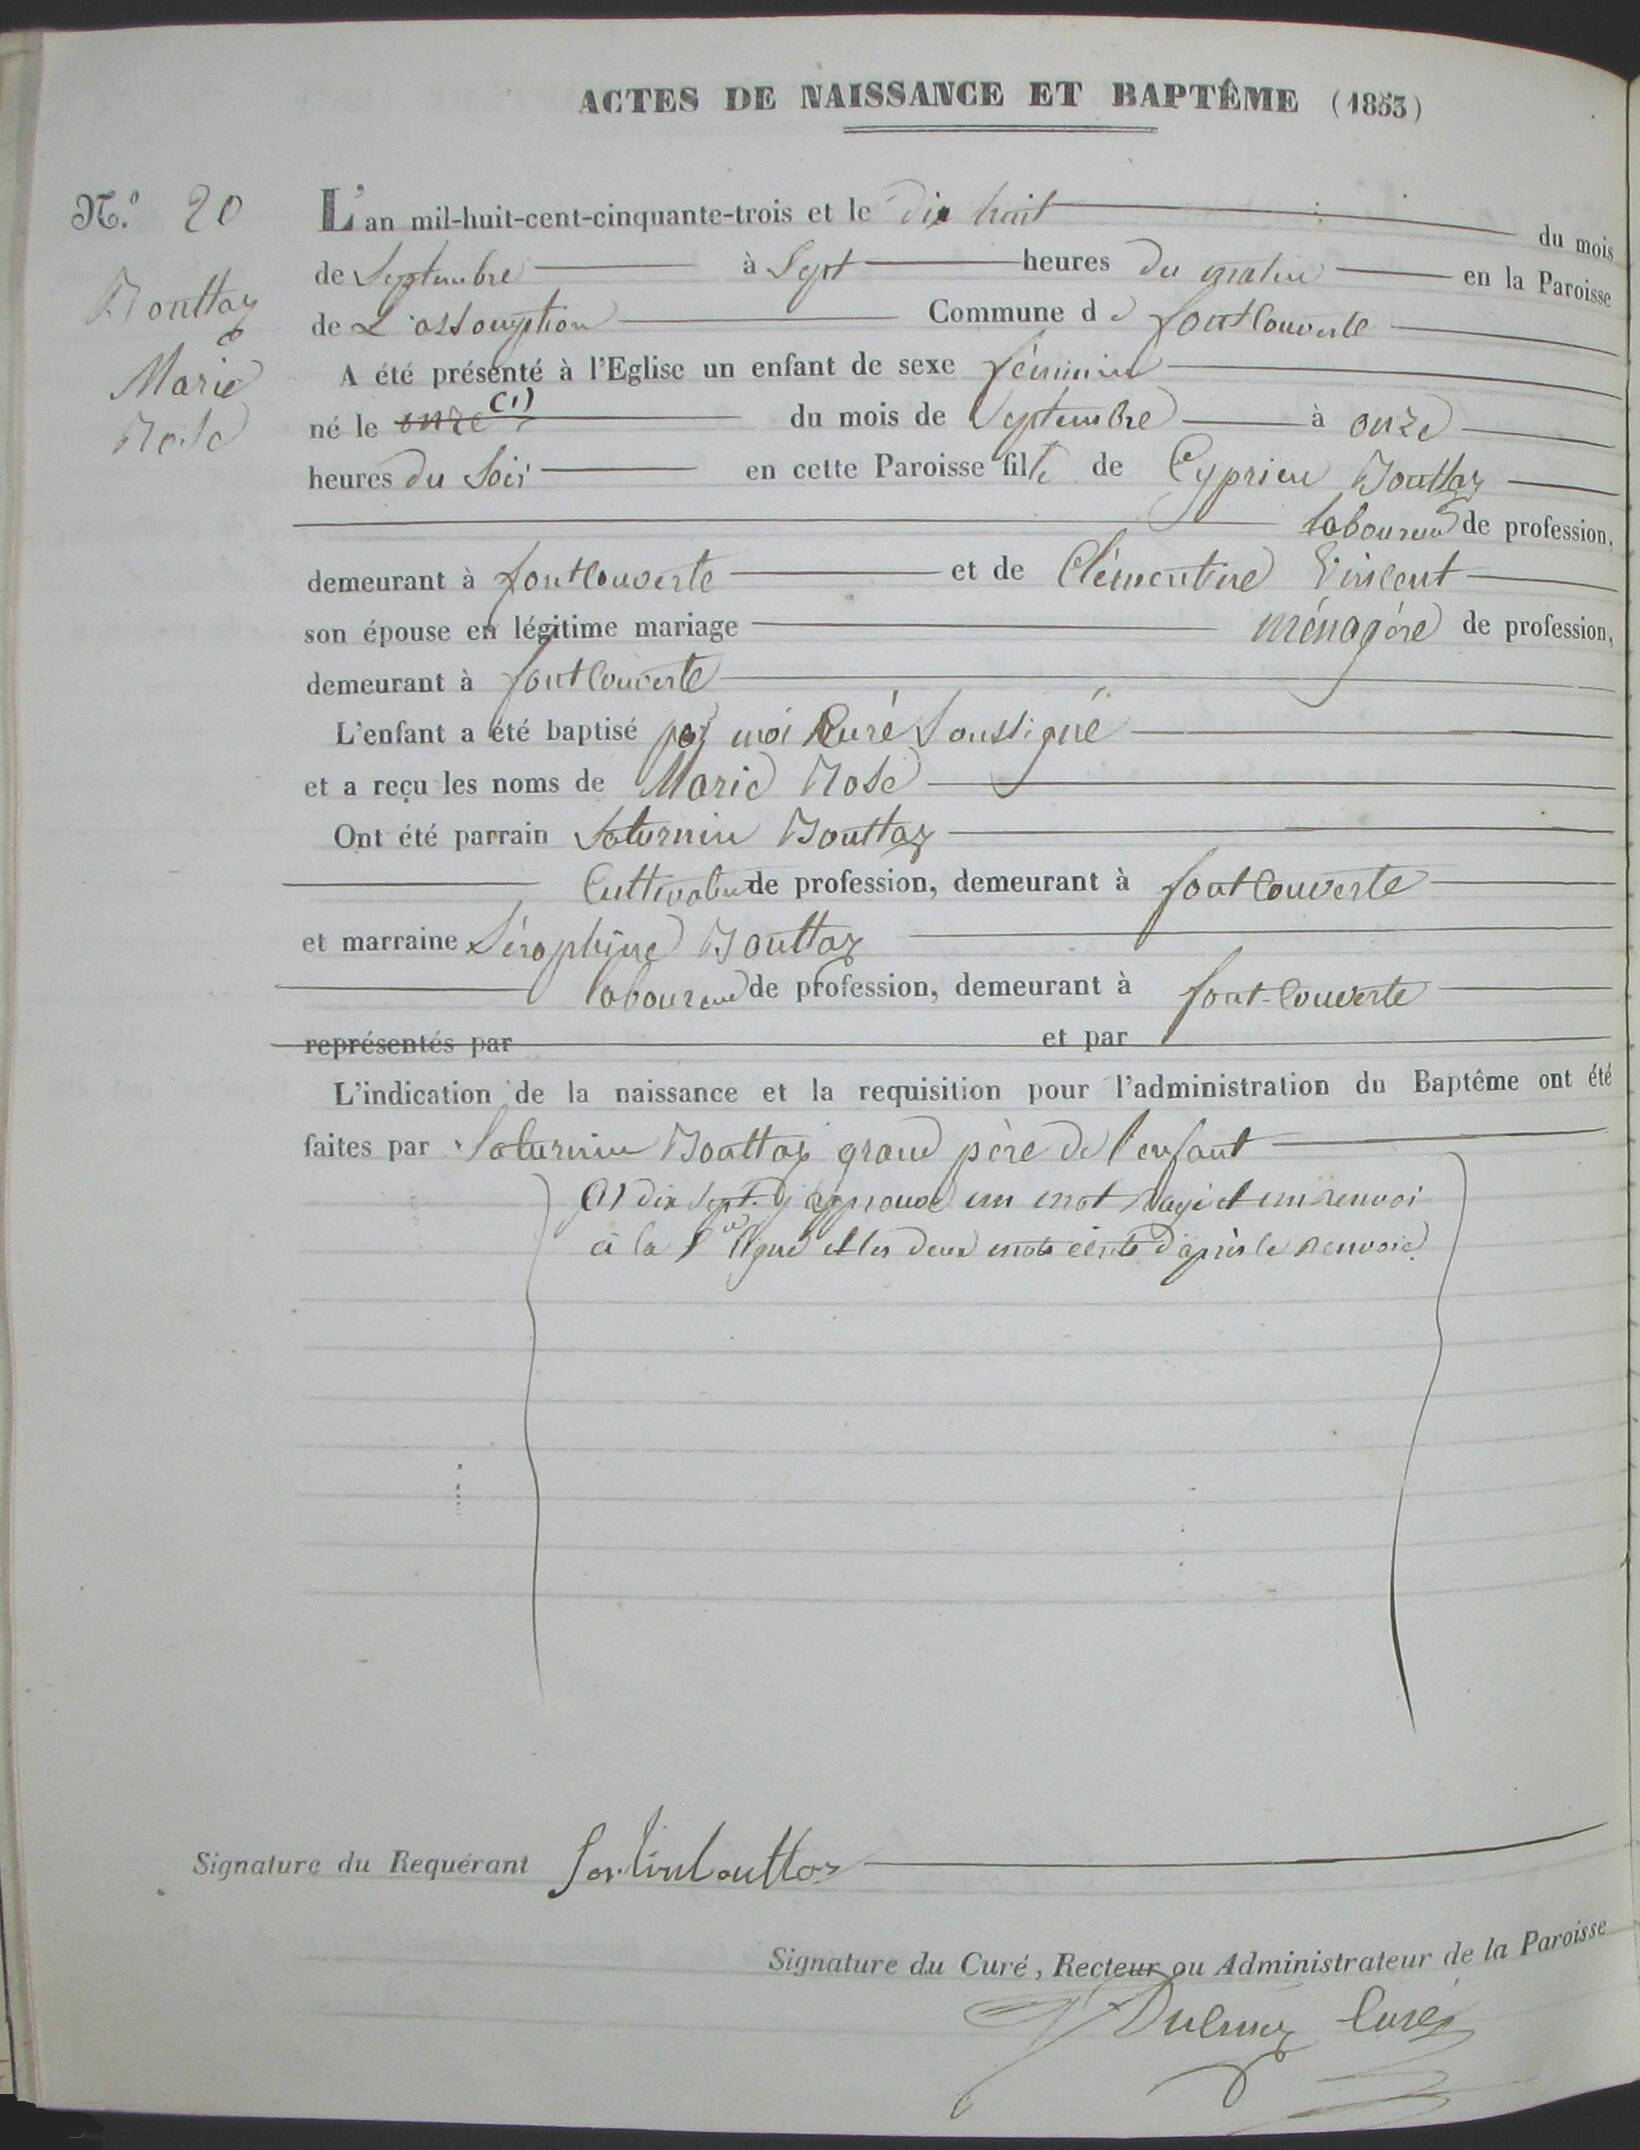 ACTES DE NAISSANCE ET BAPTÊME (1853)
N.o 20
Bouttaz
Marie
Rose
L'an mil-huit-cent-cinquante-trois et le dix huit du mois
de Septembre à Sept heures du matin en la Paroisse
de L'assomption Commune de fontcouverte
A été présenté à l'Eglise un enfant de sexe féminin
né le onze (1) du mois de Septembre à onze
heures du Soir en cette Paroisse fille de Cyprien Bouttaz
laboureur de profession,
demeurant à fontcouverte et de Clémentine Vincent
son épouse en légitime mariage ménagère de profession,
demeurant à fontcouverte
L'enfant a été baptisé par moi Curé Soussigné
et a reçu les noms de Marie Rose
Ont été parrain Saturnin Bouttaz
Cultivateur de profession, demeurant à fontcouverte
et marraine Séraphine Bouttaz
laboureur de profession, demeurant à font-couverte
représentés par et par
L'indication de la naissance et la requisition pour l'administration du Baptême ont été
faites par Saturnin Bouttaz grand père de l'enfant
(1) dix sept. j'approuve un mot rayé et un renvoi
à la ligne et les deux mots écrits d'après le renvoie.
Signature du Requérant Bouttaz
Signature du Curé, Recteur ou Administrateur de la Paroisse
Curé